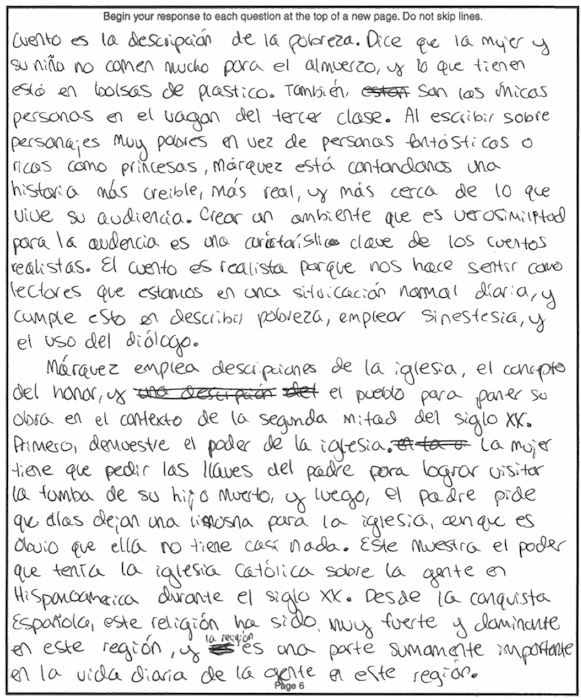 Begin your response to each question at the top of a new page. Do not skip lines.
cuento es la descripción de la pobreza. Dice que la mujer y
su niña no comen mucho para el almuerzo, y lo que tienen
está en bolsas de plastico. También, estan son las únicas
personas en el vagon del tercer clase. Al escribir sobre
personajes muy pobres en vez de personas fantásticas o
ricas como princesas, Márquez está contandonos una
historia más creible, más real, y más cerca de lo que
vive su audiencia. Crear un ambiente que es verosimilitad
para la audencia es una clave de los cuentos
realistas. El cuento es realista porque nos hace sentir como
lectores que estamos en una situicación normal diaria, y
cumple esto en describir pobreza, emplear sinestesia, y
el uso del diálogo.
Márquez emplea descripciones de la iglesia, el concepto
del honor, y una descripción del el pueblo para poner su
obra en el contexto de la segunda mitad del siglo XX.
Primero, demuestre el poder de la iglesia. La mujer
tiene que pedir las llaves del padre para lograr visitar
la tumba de su hijo muerto, y luego, el padre pide
que ellas dejan una limosna para la iglesia, aunque es
obvio que ella no tiene casi nada. Este muestra el poder
que tenía la iglesia Católica sobre la gente en
Hispanoamerica durante el siglo XX. Desde la conquista
Española, este religión ha sido muy fuerte y dominante
en este región, y la religión es una parte sumamente importante
en la vida diaria de la gente en este región.
Page 6